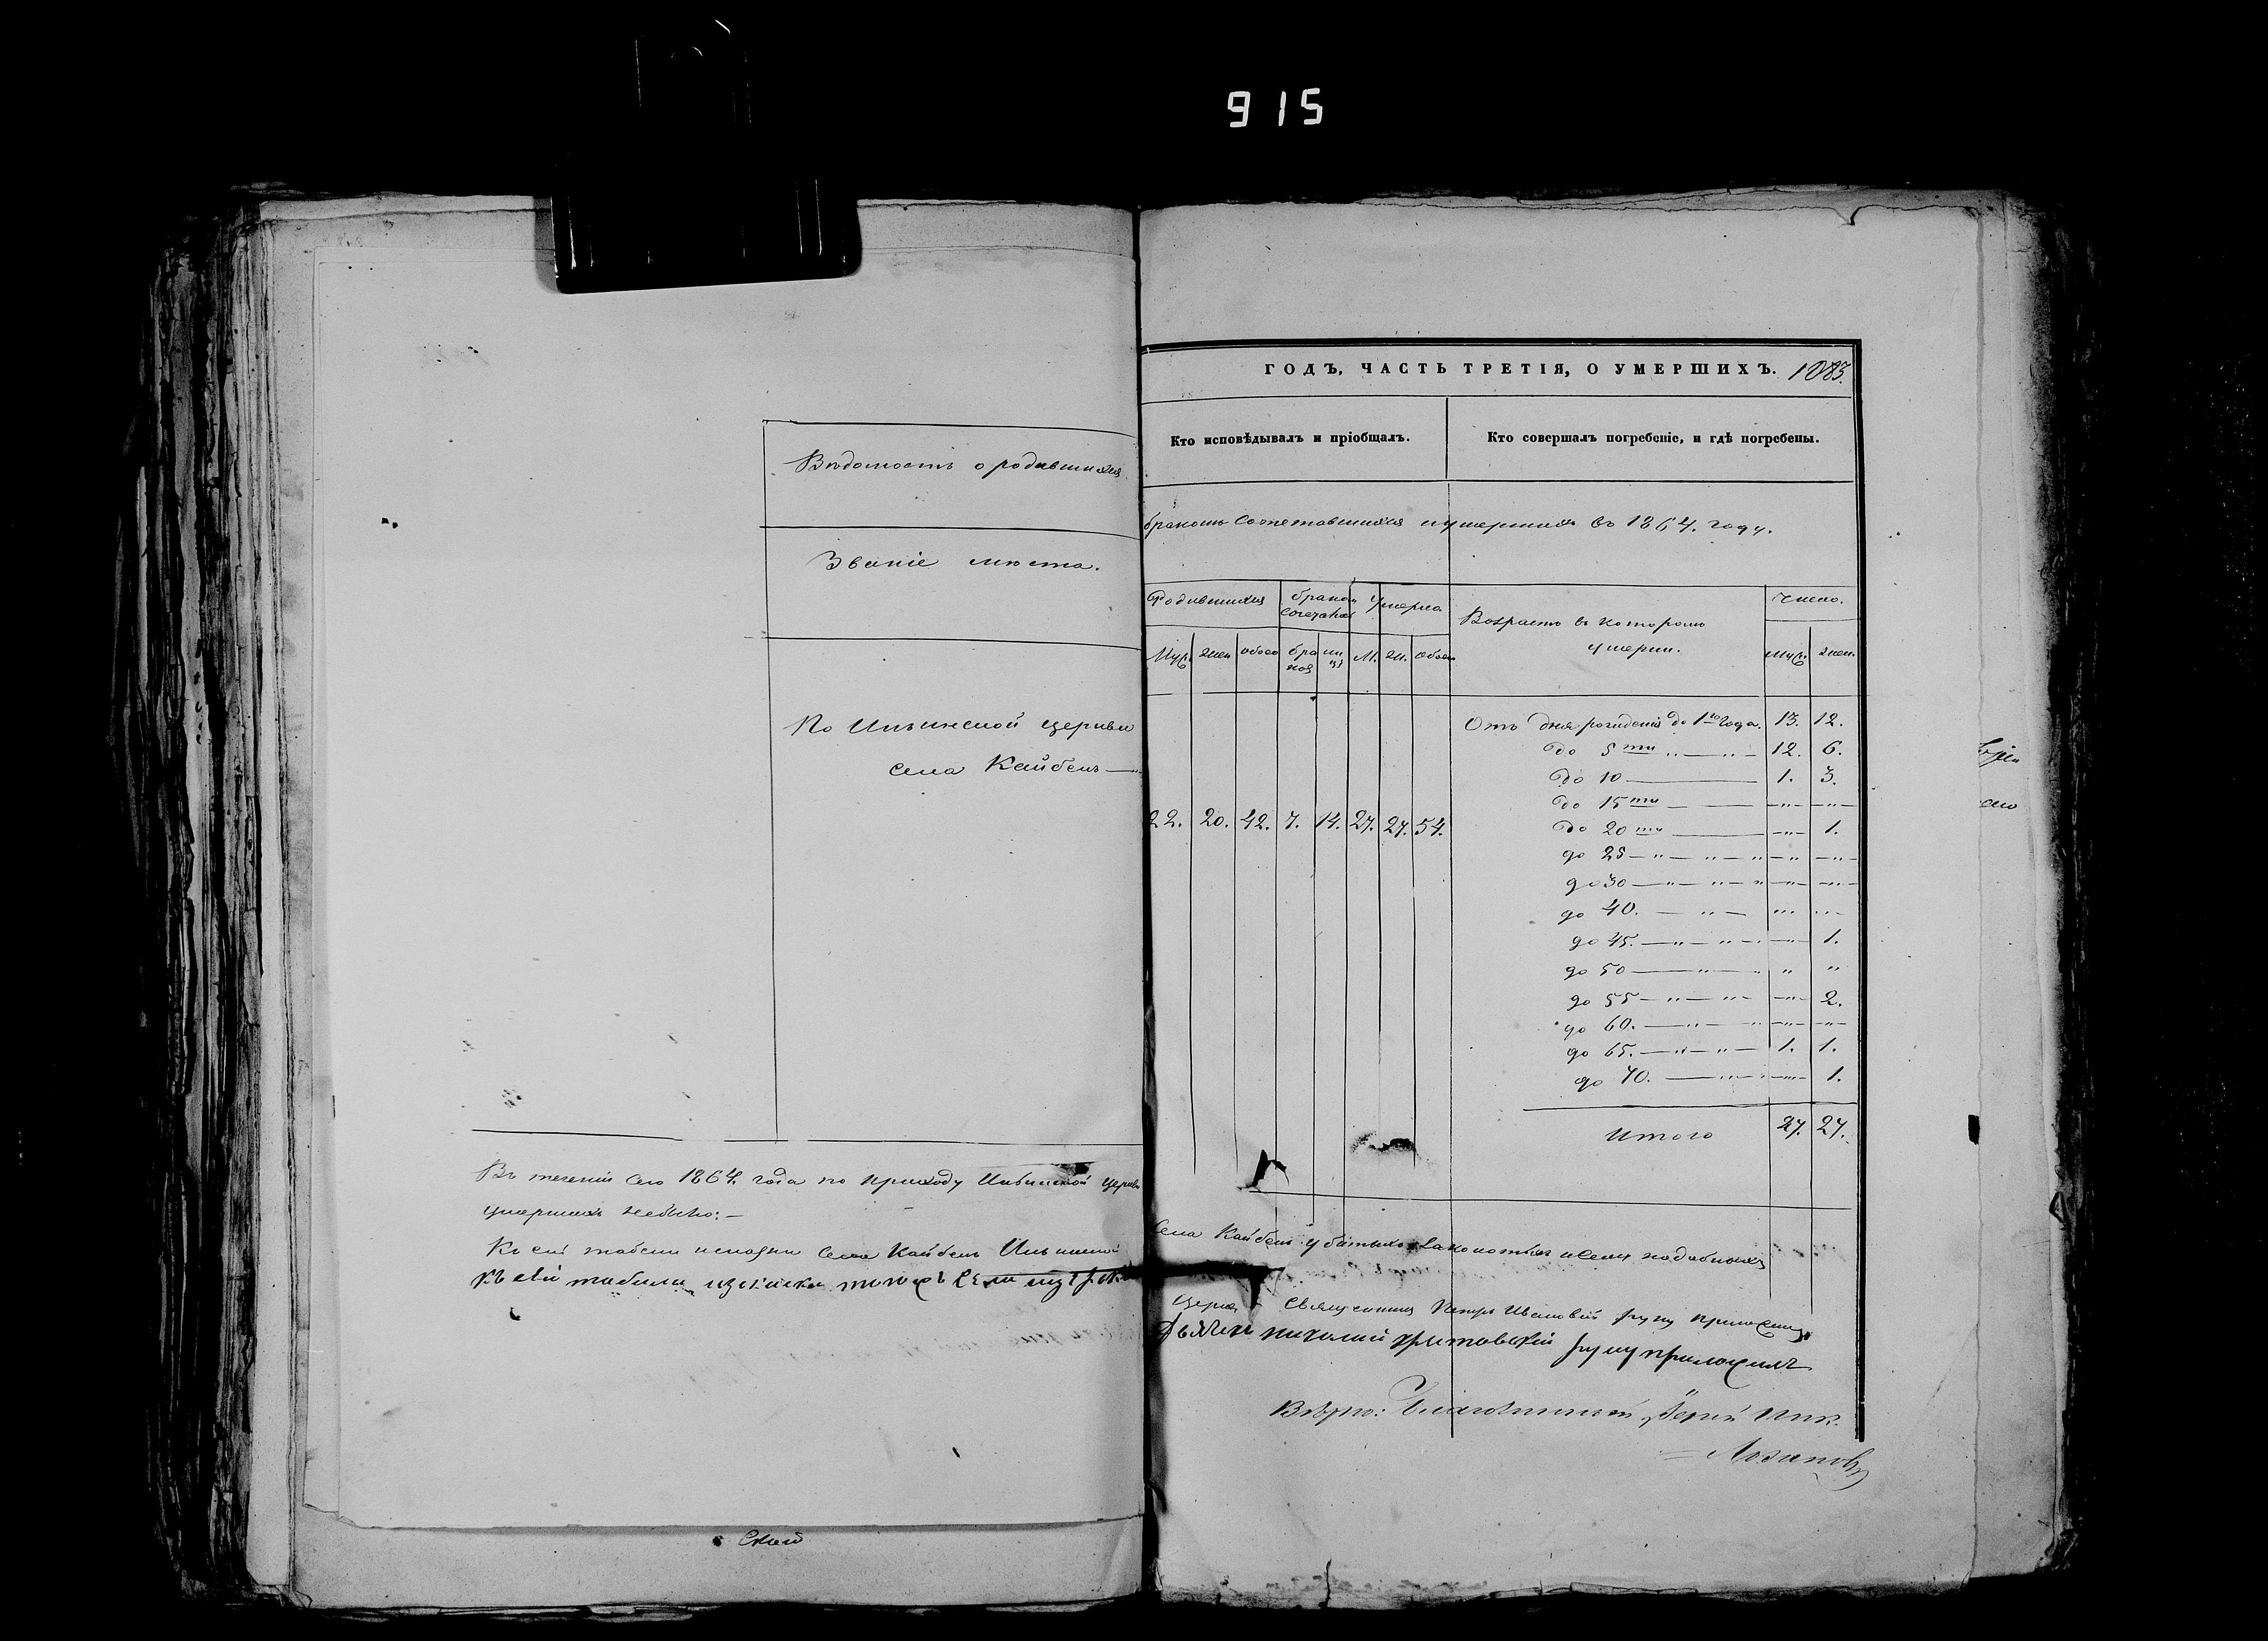 915
ГОДЪ, ЧАСТЬ ТРЕТІЯ, О УМЕРШИХЪ. 1083.
Кто исповѣдывалъ и пріобщалъ. Кто совершалъ погребеніе, и гдѣ погребены.
Вѣдомость о родившихся бракомъ сочетавшихся и умершихъ въ 1864. году.
Званіе мѣста.
Родившихся бракомъ Умерло. Возрастъ въ которомъ умерли. Число.
Муж. жен обоего бра ков лиц М. ж. обоего муж. жен.
По Ильинской церкви
села Кайбелъ
22. 20. 42. 7. 14. 27. 27. 54.
Отъ дня рожденія до 1го года. 13. 12.
до 5ти 12. 6.
до 10 1. 3.
до 15ти
до 20ти 1.
до 25
до 30
до 40.
до 45. 1.
до 50
до 55 2.
до 60.
до 65. 1. 1.
до 70. 1.
Итого 27. 27.
Въ теченіи сего 1864. года по приходу Ильинской церкви села Кайбелъ убитыхъ и симъ подобныхъ
умершихъ небыло:
Къ сей табели села Кайбелъ Ильинской церкви Священникъ Петръ руку приложилъ
Къ сей табели тогожъ села Дьячекъ николай руку приложилъ
Вѣрно: Благочинный, Іерей Ник.
Лозановъ
Скай